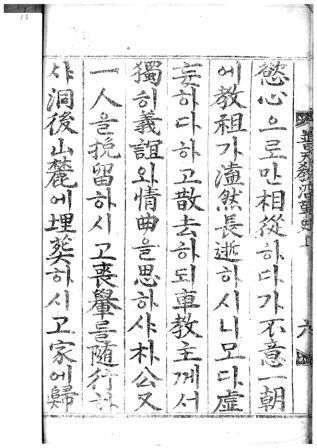 普天教沿革史上 六
慾心으로만相從하다가不意一朝
에教祖가溘然長逝하시니모다虛
妄하다하고散去하되車教主께서
獨히義誼와情曲을思하샤朴公又
一人을挽留하시고喪轝를隨行하
샤洞後山麓에埋葬하시고家에歸